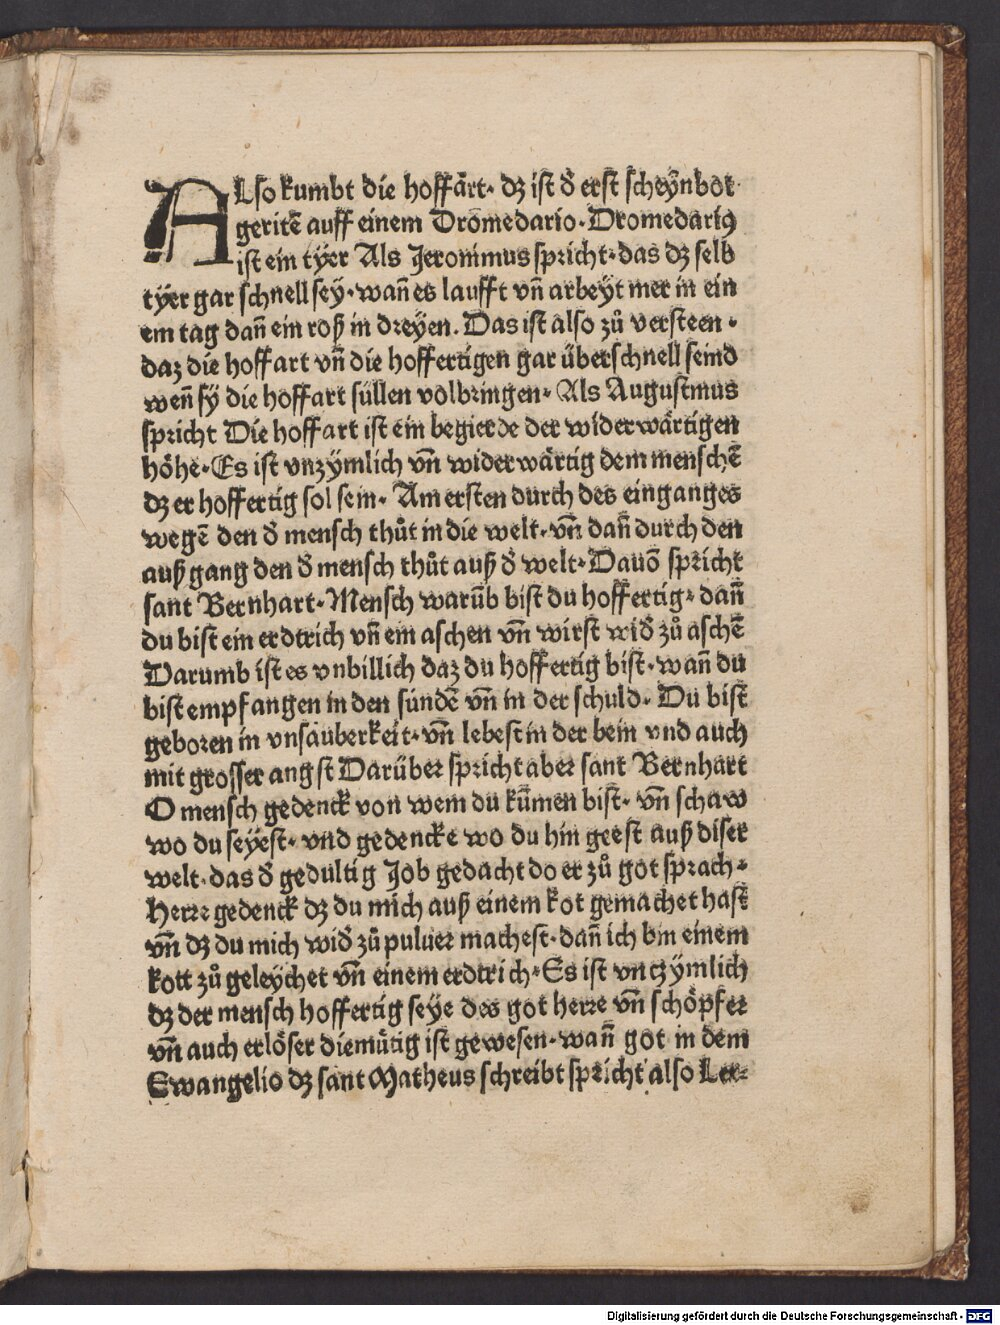 ALso kumbt die hoffart· dz ist d̕ erst scheÿnbot
geritē auff einem Dromedario·Dromedariꝯ
ist ein tÿer Als Jeronimus spricht·das dz selb
tÿer gar schnell sey·wañ es laufft vñ arbeyt mer in ein
em tag dañ ein roß in dreÿen. Das ist also zů versteen·
daz die hoffart vñ die hoffertigen gar überschnell seind
weñ sÿ die hoffart süllen volbringen· Als Augustinus
spricht Die hoffart ist ein begierde der widerwärtigen
höhe·Es ist vnzÿmlich vñ widerwärtig dem menschē
dz er hoffertig sol sein· Am ersten durch des einganges
wegē den d̕ mensch thůt in die welt·vñ dañ durch den
außgang den d̕ mensch thůt auß d̕ welt·Dauō spricht
sant Bernhart·Mensch warūb bist du hoffertig· dañ
du bist ein erdtrich vñ ein aschen vñ wirst wid̕ zů aschē
Darumb ist es vnbillich daz du hoffertig bist·wañ du
bist empfangen in den sündē vñ in der schuld· Du bist
geboren in vnsauberkeit·vñ lebest in der bein vnd auch
mit grosser angst Darüber spricht aber sant Bernhart
O mensch gedenck von wem du kūmen bist· vñ schaw
wo du seÿest· vnd gedencke wo du hin geest auß diser
welt·das d̕ gedultig Job gedacht do er zů got sprach·
Herre gedenck dz du mich auß einem kot gemachet hast
vñ dz du mich wid̕ zů puluer machest·dañ ich bin einem
kott zů geleÿchet vñ einem erdtrich·Es ist vnczÿmlich
dz der mensch hoffertig seÿe des got herre vñ schöpfer
vñ auch erlöser diemütig ist gewesen·wañ got in dem
Ewangelio dz sant Matheus schreibt spricht also Ler⸗
Digitalisierung gefördert durch die Deutsche Forschungsgemeinschaft - DFG